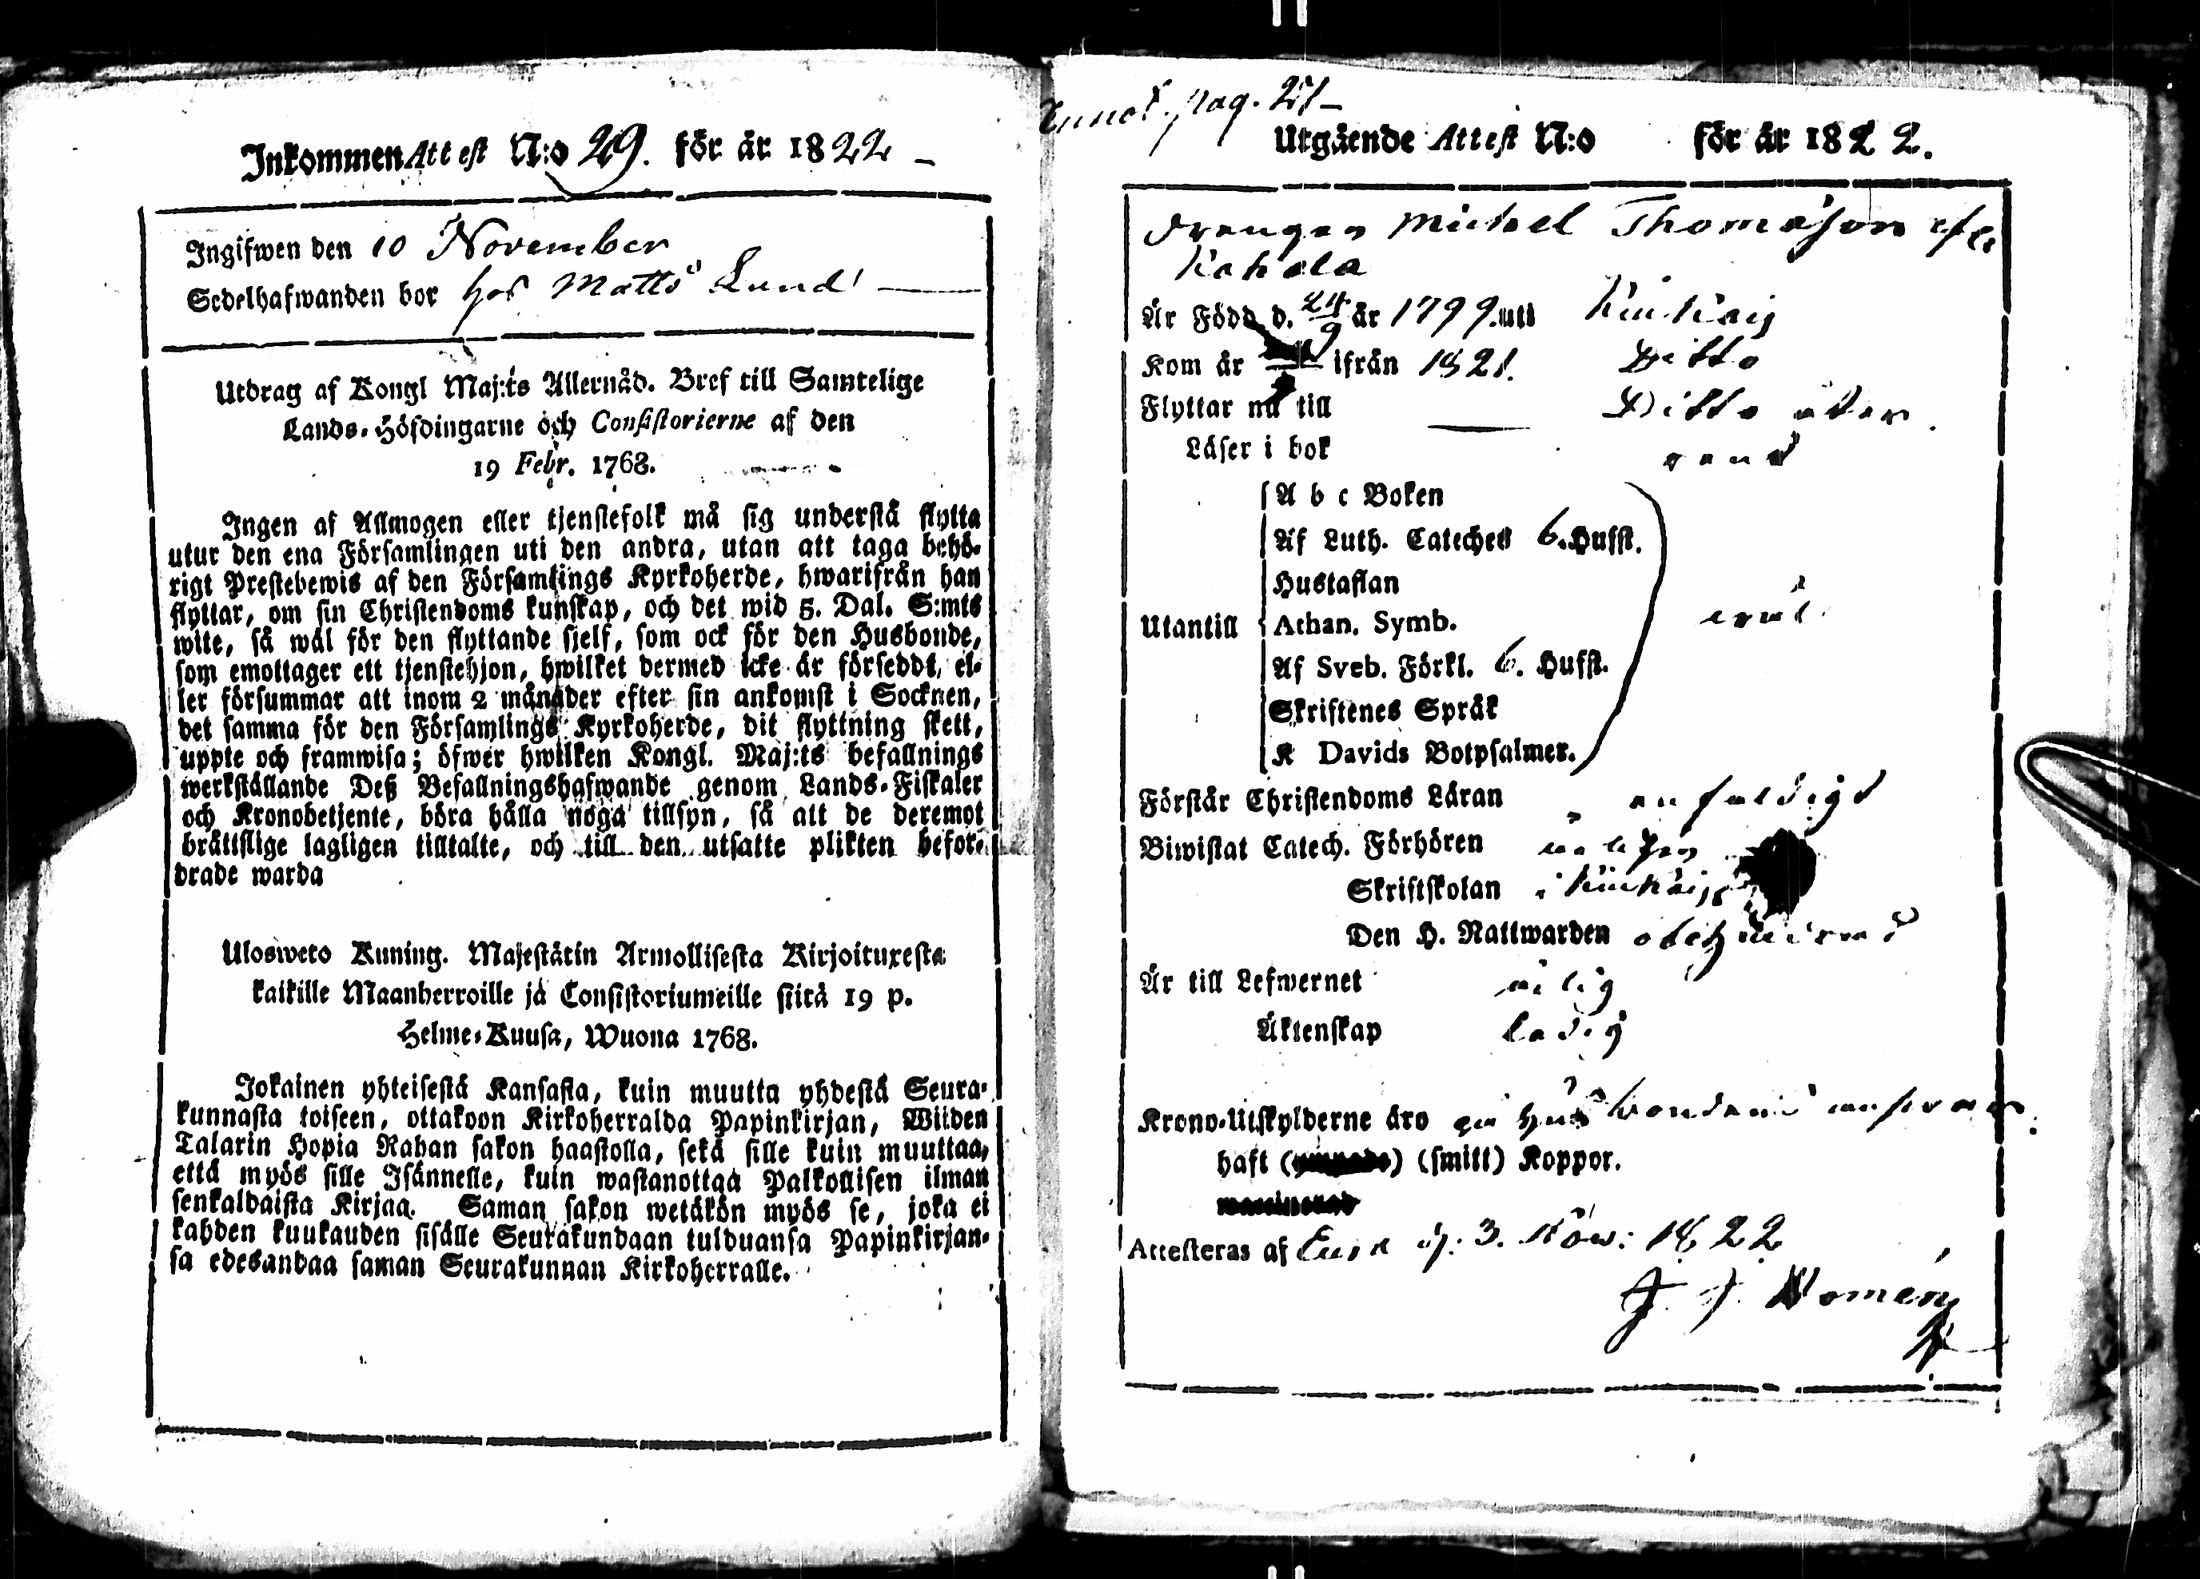 Inkommen Attest N:o 29. för år 1822 –
Ingifwen den 10 November
Sedelhafwanden bor hos Matts Lund
Utdrag af Kongl Maj:ts Allernåd. Bref till Samtelige
Lands-Höfdingarne och Consistorierne af den
19 Febr. 1768.
Ingen af Allmogen eller tjenstefolk må sig understå flytta
utur den ena Församlingen uti den andra, utan att taga behö-
rigt Prestebewis af den Församlings Kyrkoherde, hwarifrån han
flyttar, om sin Christendoms kunskap, och det wid 5. Dal. S:mts
wite, så wäl för den flyttande sjelf, som ock för den Husbonde,
som emottager ett tjenstehjon, hwilket dermed icke är förseddt, el-
ler försummar att inom 2 månader efter sin ankomst i Socknen,
det samma för den Församlings Kyrkoherde, dit flyttning skett,
uppte och framwisa; öfwer hwilken Kongl. Maj:ts befallnings
werkställande Deß Befallningshafwande genom Lands-Fiskaler
och Kronobetjente, böra hålla noga tillsyn, så att de deremot
brättslige lagligen tilltalte, och till den utsatte plikten befor-
drade warda
Ulosweto Kuning. Majestätin Armollisesta Kirjoituxesta
kaikille Maanherroille ja Consistoriumeille siitä 19 p.
Helme-Kuusa, Wuona 1768.
Jokainen yhteisestä Kansasta, kuin muutta yhdestä Seura-
kunnasta toiseen, ottakoon Kirkoherralda Papinkirjan, Wiiden
Talarin Hopia Rahan sakon haastolla, sekä sille kuin muuttaa,
että myös sille Isännelle, kuin wastanottaa Palkollisen ilman
senkaldaista Kirjaa. Saman sakon wetäkön myös se, joka ei
kahden kuukauden sisälle Seurakundaan tulduansa Papinkirjan-
sa edesandaa saman Seurakunnan Kirkoherralle.
pag. 27–
Utgående Attest N:o för år 1822.
Drengen Michel Thomasson
Kahala
Är Född d. 24/9 år 1799. uti Kiukais
Kom år ifrån 1821. Ditto
Flyttar nu till Ditto åter
Läser i bok
A b c Boken
Af Luth. Cateches 6. Hufst.
Hustaflan
Utantill Athan. Symb.
Af Sveb. Förkl. 6. Hufst.
Skriftenes Språk
K Davids Botpsalmer.
Förstår Christendoms Läran enfaldigt
Biwistat Catech. Förhören
Skriftskolan i Kiukais
Den H. Nattwarden
Är till Lefwernet ärlig
Äktenskap ledig
Krono-Utskylderne äro på Husbondens answar.
haft () (smitt) Koppor.
Attesteras af Eura d. 3. Nov: 1822